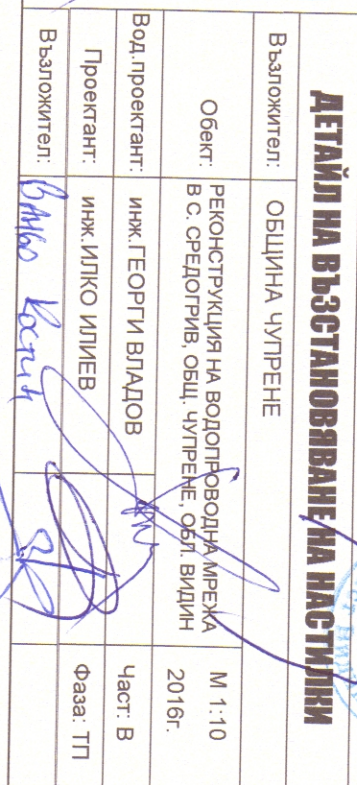 ДЕТАЙЛ НА ВЪЗСТАНОВЯВАНЕ НА НАСТИЛКИ
Възложител: ОБЩИНА ЧУПРЕНЕ
Обект: РЕКОНСТРУКЦИЯ НА ВОДОПРОВОДНА МРЕЖА
В С. СРЕДОГРИВ, ОБЩ. ЧУПРЕНЕ, ОБЛ. ВИДИН
М 1:10
2016г.
Вод.проектант: инж.ГЕОРГИ ВЛАДОВ
Част: В
Проектант: инж.ИЛКО ИЛИЕВ
Фаза: ТП
Възложител: Ваньо Костин